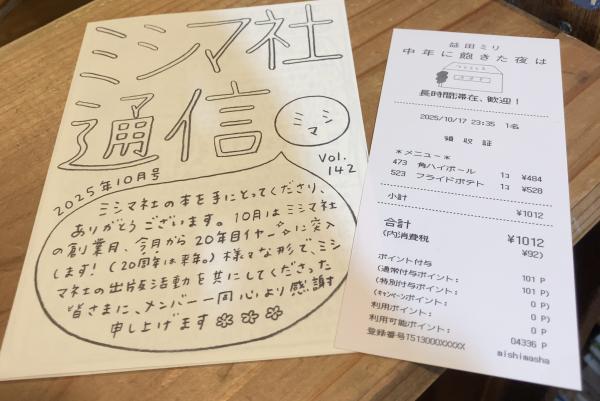 ミシマ社
通信
ミシ
マ
Vol.
142
2025年10月号
ミシマ社の本を手にとってくださり、
ありがとうございます。10月はミシマ社
の創業月、今月から20年目イヤー☆に突入
します！(20周年は来年。)様々な形で、ミシ
マ社の出版活動を共にしてくださった
皆さまに、メンバー一同心より感謝
申し上げます
益田ミリ
中年に飽きた夜は
長時間滞在、歓迎！
2025/10/17 23:35 1名
領収証
*メニュー*
473 角ハイボール 1コ ¥484
523 フライドポテト 1コ ¥528
小計 ¥1012
合計 ¥1012
(内消費税 ¥92)
ポイント付与
(通常付与ポイント: 101 P
(特別付与ポイント: 101 P)
(キャンペーンポイント: 0 P)
利用ポイント: 0 P
利用可能ポイント: 04336 P
登録番号T513000XXXXX
mishimasha